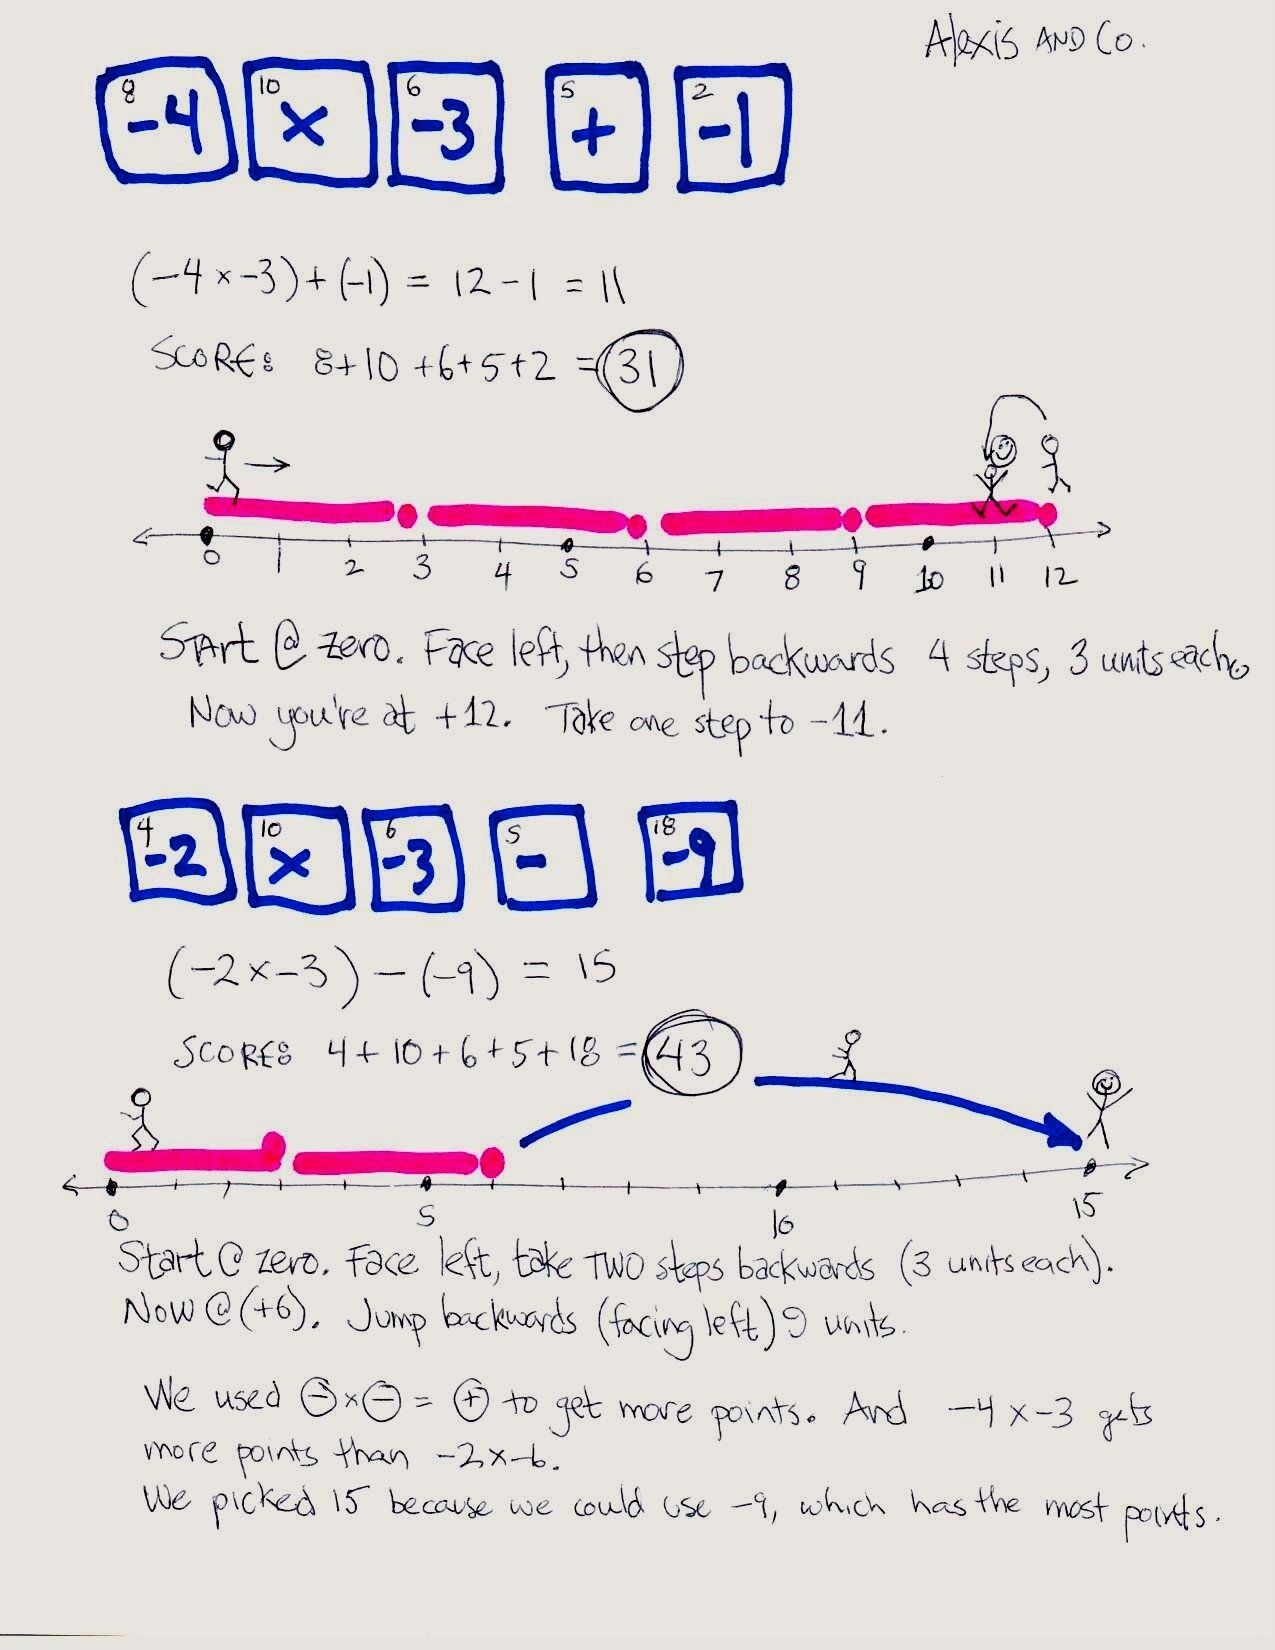 Alexis AND Co.
8 10 6 5 2
-4 × -3 + -1
(-4 × -3) + (-1) = 12 - 1 = 11
SCORE: 8+10+6+5+2 = 31
0 1 2 3 4 5 6 7 8 9 10 11 12
Start @ zero. Face left, then step backwards 4 steps, 3 units each.
Now you're at +12. Take one step to -11.
4 10 6 5 18
-2 × -3 - -9
(-2 × -3) - (-9) = 15
SCORE: 4+10+6+5+18 = 43
0 5 10 15
Start @ zero. Face left, take TWO steps backwards (3 units each).
Now @ (+6). Jump backwards (facing left) 9 units.
We used ⊖×⊖ = ⊕ to get more points. And -4 × -3 gets
more points than -2×-6.
We picked 15 because we could use -9, which has the most points.